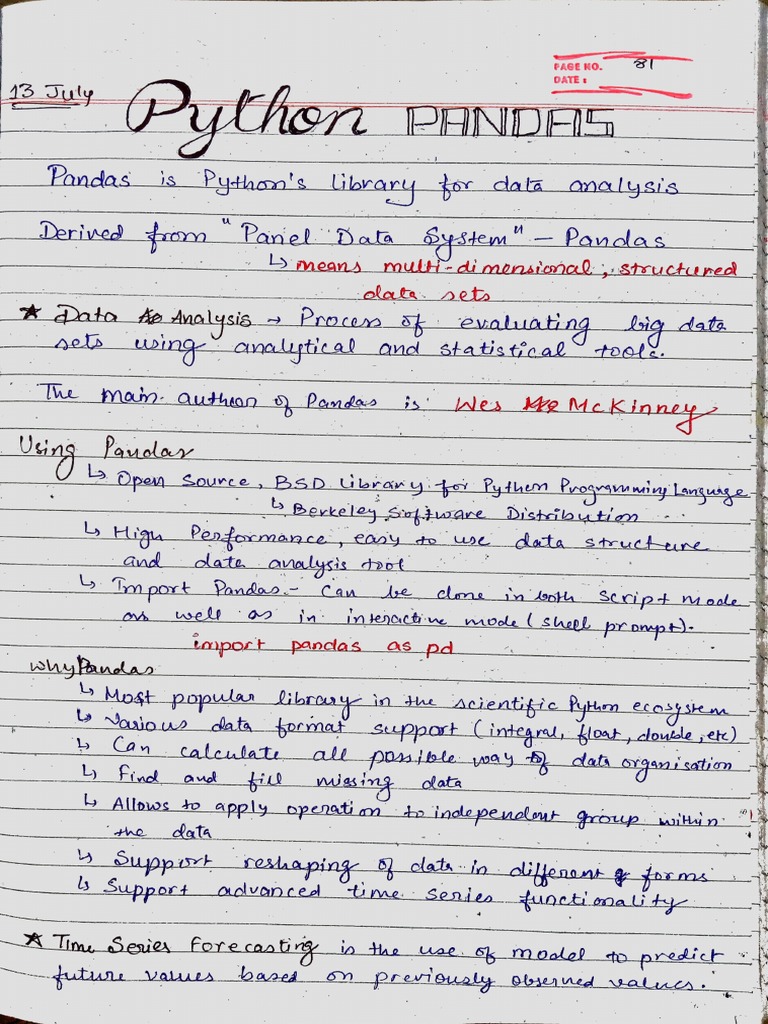 PAGE NO. 81
DATE :
13 July
Python PANDAS
Pandas is Python's library for data analysis
Derived from "Panel Data System" – Pandas
↳ means multi-dimensional, structured
data sets
★ Data Analysis → Process of evaluating big data
sets using analytical and statistical tools.
The main author of Pandas is Wes McKinney
Using Pandas
↳ Open Source, BSD library for Python Programming Language
↳ Berkeley Software Distribution
↳ High Performance, easy to use data structure
and data analysis tool
↳ Import Pandas - Can be done in both script mode
as well as in interactive mode (shell prompt).
import pandas as pd
Why Pandas
↳ Most popular library in the scientific Python ecosystem
↳ Various data format support (integral, float, double, etc)
↳ Can calculate all possible way of data organisation
↳ Find and fill missing data
↳ Allows to apply operation to independent group within
the data
↳ Support reshaping of data in different forms
↳ Support advanced time series functionality
★ Time Series Forecasting is the use of model to predict
future values based on previously observed values.